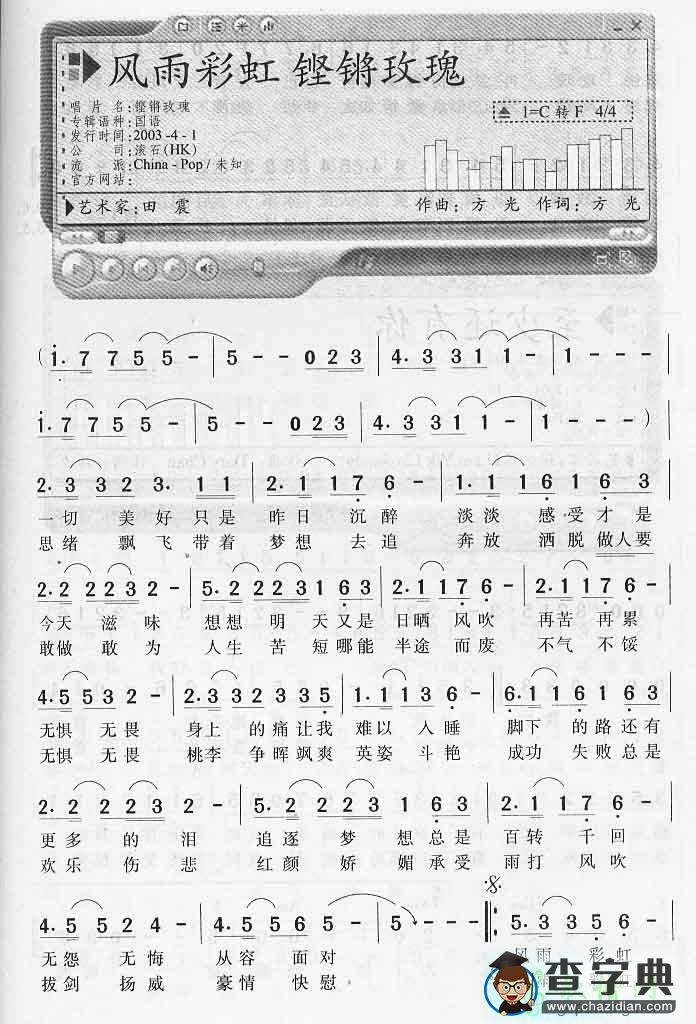 风雨彩虹 铿锵玫瑰
唱片名:铿锵玫瑰
专辑语种:国语
发行时间:2003-4-1
公司:滚石(HK)
流派:China-Pop/未知
官方网站:
1=C 转 F 4/4
艺术家:田震 作曲:方光 作词:方光
(1. 7 7 5 5 - | 5 - - 0 2 3 | 4. 3 3 1 1 - | 1 - - - |
1. 7 7 5 5 - | 5 - - 0 2 3 | 4. 3 3 1 1 - | 1 - - - )
2. 3 3 2 3. 1 1 | 2. 1 1 7 6 - | 1. 1 1 6 1 6 3 |
一切 美好只是 昨日 沉醉 淡淡 感受才是
思绪 飘飞带着 梦想 去追 奔放 洒脱做人要
2. 2 2 2 3 2 - | 5. 2 2 2 3 1 6 3 | 2. 1 1 7 6 - | 2. 1 1 7 6 - |
今天 滋味 想想 明天又是 日晒 风吹 再苦 再累
敢做 敢为 人生 苦短哪能 半途 而废 不气 不馁
4. 5 5 3 2 - | 2. 3 3 2 3 5 5 | 1. 1 1 3 6 - | 6. 1 1 6 1 6 3 |
无惧 无畏 身上 的痛让我 难以 人睡 脚下 的路还有
无惧 无畏 桃李 争晖飒爽 英姿 斗艳 成功 失败总是
2. 2 2 2 3 2 - | 5. 2 2 2 3 1 6 3 | 2. 1 1 7 6 - |
更多 的泪 追逐 梦想总是 百转 千回
欢乐 伤悲 红颜 娇媚承受 雨打 风吹
4. 5 5 2 4 - | 4. 5 5 6 5 - | 5 - - - | 5. 3 3 5 6 - |
无怨 无悔 从容 面对 风雨 彩虹
拔剑 扬威 豪情 快慰
查字典
www.chazidian.com